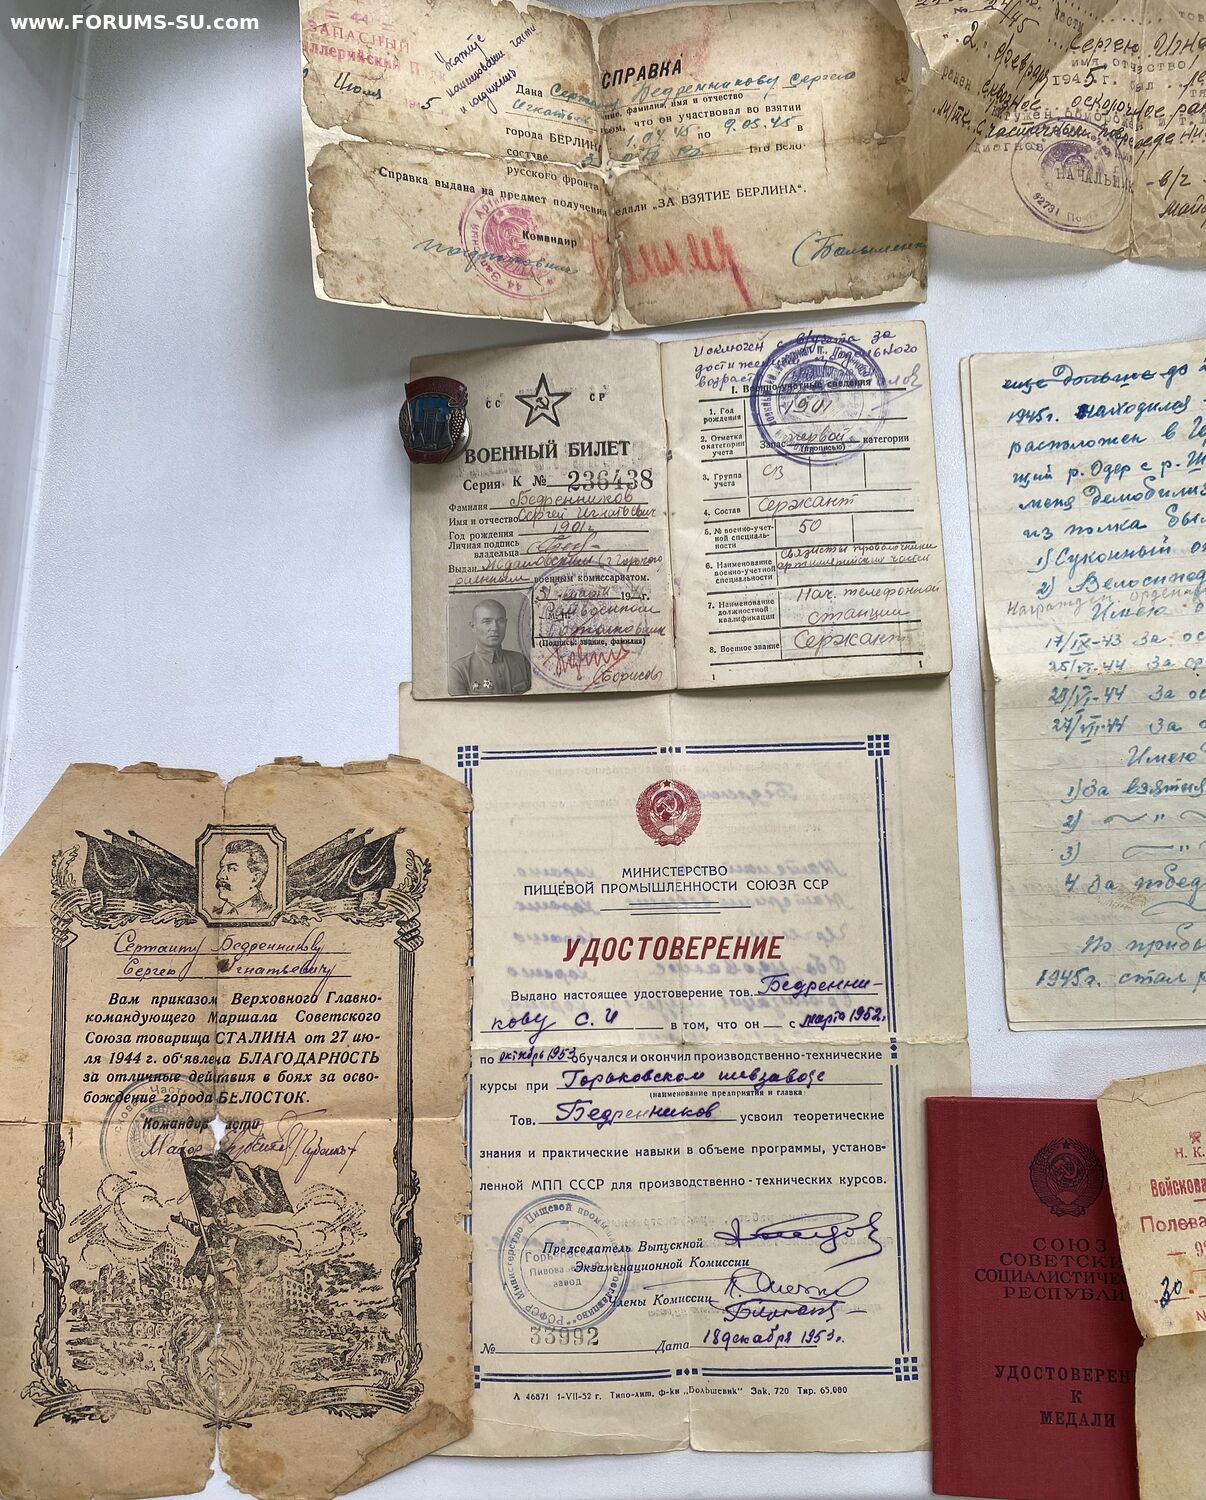 www.FORUMS-SU.com
44
ЗАПАСНЫЙ
Июня 5
Укажите
наименование части
и должно
СПРАВКА
Дана Сержанту Бедренникову Сергею
фамилия, имя и отчество
Игнатьев
что он участвовал во взятии
города БЕРЛИН 1.04.45 по 9.05.45 в
составе 1-го Бело-
русского фронта
Справка выдана на предмет получения медали „ЗА ВЗЯТИЕ БЕРЛИНА“.
Командир
№ 24/45
Сергей Игна
имя отчество
„2“ февраля 1945 г. был
ранен сквозное осколочное ран
диагноз
НАЧАЛЬНИК
в/ч
92731
СС СР
ВОЕННЫЙ БИЛЕТ
Серия К № 236438
Фамилия Бедренников
Имя и отчество Сергей Игнатьевич
Год рождения 1901 г.
Личная подпись
владельца
Выдан Ждановским г Горького
районным военным комиссариатом.
(Подпись: звание, фамилия)
Борисов
Исключен с в/учета за
достижен предельного
возраст
I. Военно-учетные сведения
1. Год
рождения 1901
2. Отметка
о категории
учета Запас первой категории
(прописью)
3. Группа
учета СВ
4. Состав Сержант
5. № военно-учет-
ной специаль-
ности 50
6. Наименование
военно-учетной
специальности Связисты проволочники
артиллерийских частей
7. Наименование
должностной
квалификации Нач. телефонной
станции
8. Военное звание Сержант
1
1
еще дольше до
1945г. находился
расположен в Ге
щий р. Одер с р. Ш
меня демобилиз
из полка бы
1) Суконный о
2) Велосипед
Награжден орденом
Имею
17/IX-43 За ос
25/VI-44 За ср
29/VI-44 За ос
27/VII-44 За о
Имею
1) За взятие
2) — " —
3) — " —
4 За побед
По прибы
1945г. стал р
Сержанту Бедренникову
Сергею Игнатьевичу
Вам приказом Верховного Главно-
командующего Маршала Советского
Союза товарища СТАЛИНА от 27 ию-
ля 1944 г. об'явлена БЛАГОДАРНОСТЬ
за отличные действия в боях за осво-
бождение города БЕЛОСТОК.
Командир части
Майор
МИНИСТЕРСТВО
ПИЩЕВОЙ ПРОМЫШЛЕННОСТИ СОЮЗА ССР
УДОСТОВЕРЕНИЕ
Выдано настоящее удостоверение тов. Бедренни-
кову С. И в том, что он с марта 1952г.
по октябрь 1953 обучался и окончил производственно-технические
курсы при Горьковском пивзаводе
(наименование предприятия и главка
Тов. Бедренников усвоил теоретические
знания и практические навыки в объеме программы, установ-
ленной МПП СССР для производственно-технических курсов.
Председатель Выпускной
Экзаменационной Комиссии
Члены Комиссии
Министерство Пищевой промы
завод
№ 33992 Дата 18 декабря 1953г.
Л 46871 1-VII-52 г. Типо-лит. ф-ки „Большевик“ Зак. 720 Тир. 65.000
СОЮЗ
СОВЕТСКИ
СОЦИАЛИСТИЧЕ
РЕСПУБЛИ
УДОСТОВЕРЕН
К
МЕДАЛИ
Н. К.
Войскова
Полева
30